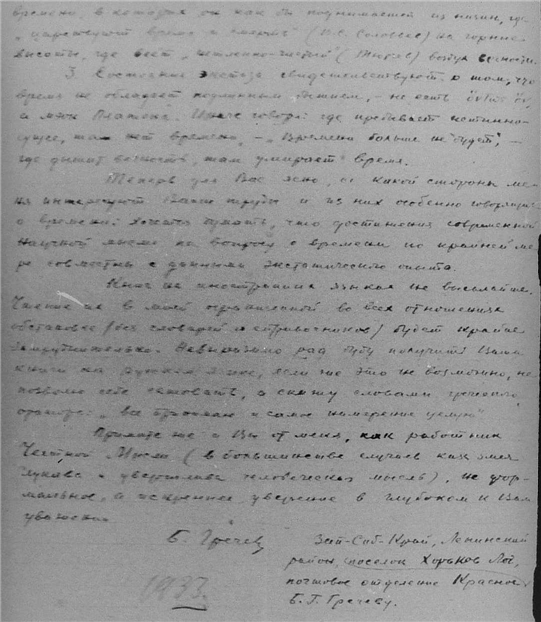 времени, в котором он как бы поднимается из низин, где
„царствуют время и смерть" (В.С. Соловьев) на горние
высоты, где веет „нетленно-чистый" (Тютчев) воздух вечности.
3. Состояние экстаза свидетельствуют о том, что
время не обладает подлинным бытием, – не есть
Платона. Иначе говоря: где пребывает истинно-
сущее, там нет времени, – „Времени больше не будет", –
где дышит вечность, там умирает время.
Теперь для Вас ясно, с какой стороны ме-
ня интересуют Ваши труды и из них особенно говорящие
о времени. Хочется думать, что достижения современной
научной мысли по вопросу о времени по крайней ме-
ре совместны с данными экстатического опыта.
Книг на иностранных языках не высылайте.
Чтение их в моей ограниченной во всех отношениях
обстановке (без словарей и справочников) будет крайне
затруднительно. Невыразимо рад буду получить Ваши
книги на русском языке, если же это не возможно, не
позволю себе сетовать, а скажу словами греческого
оратора: „все принимаю и самое намерение целую"
Примите же и Вы от меня, как работник
Честной Мысли (в большинстве случаев как змея
лукава и увертлива человеческая мысль), не фор-
мальное, а искреннее уверение в глубоком к Вам
уважении.
Б. Гречев
1933.
Зап-Сиб-Край, Ленинский
район, поселок Хорьков Лог,
почтовое отделение Красное
Б. Г. Гречеву.